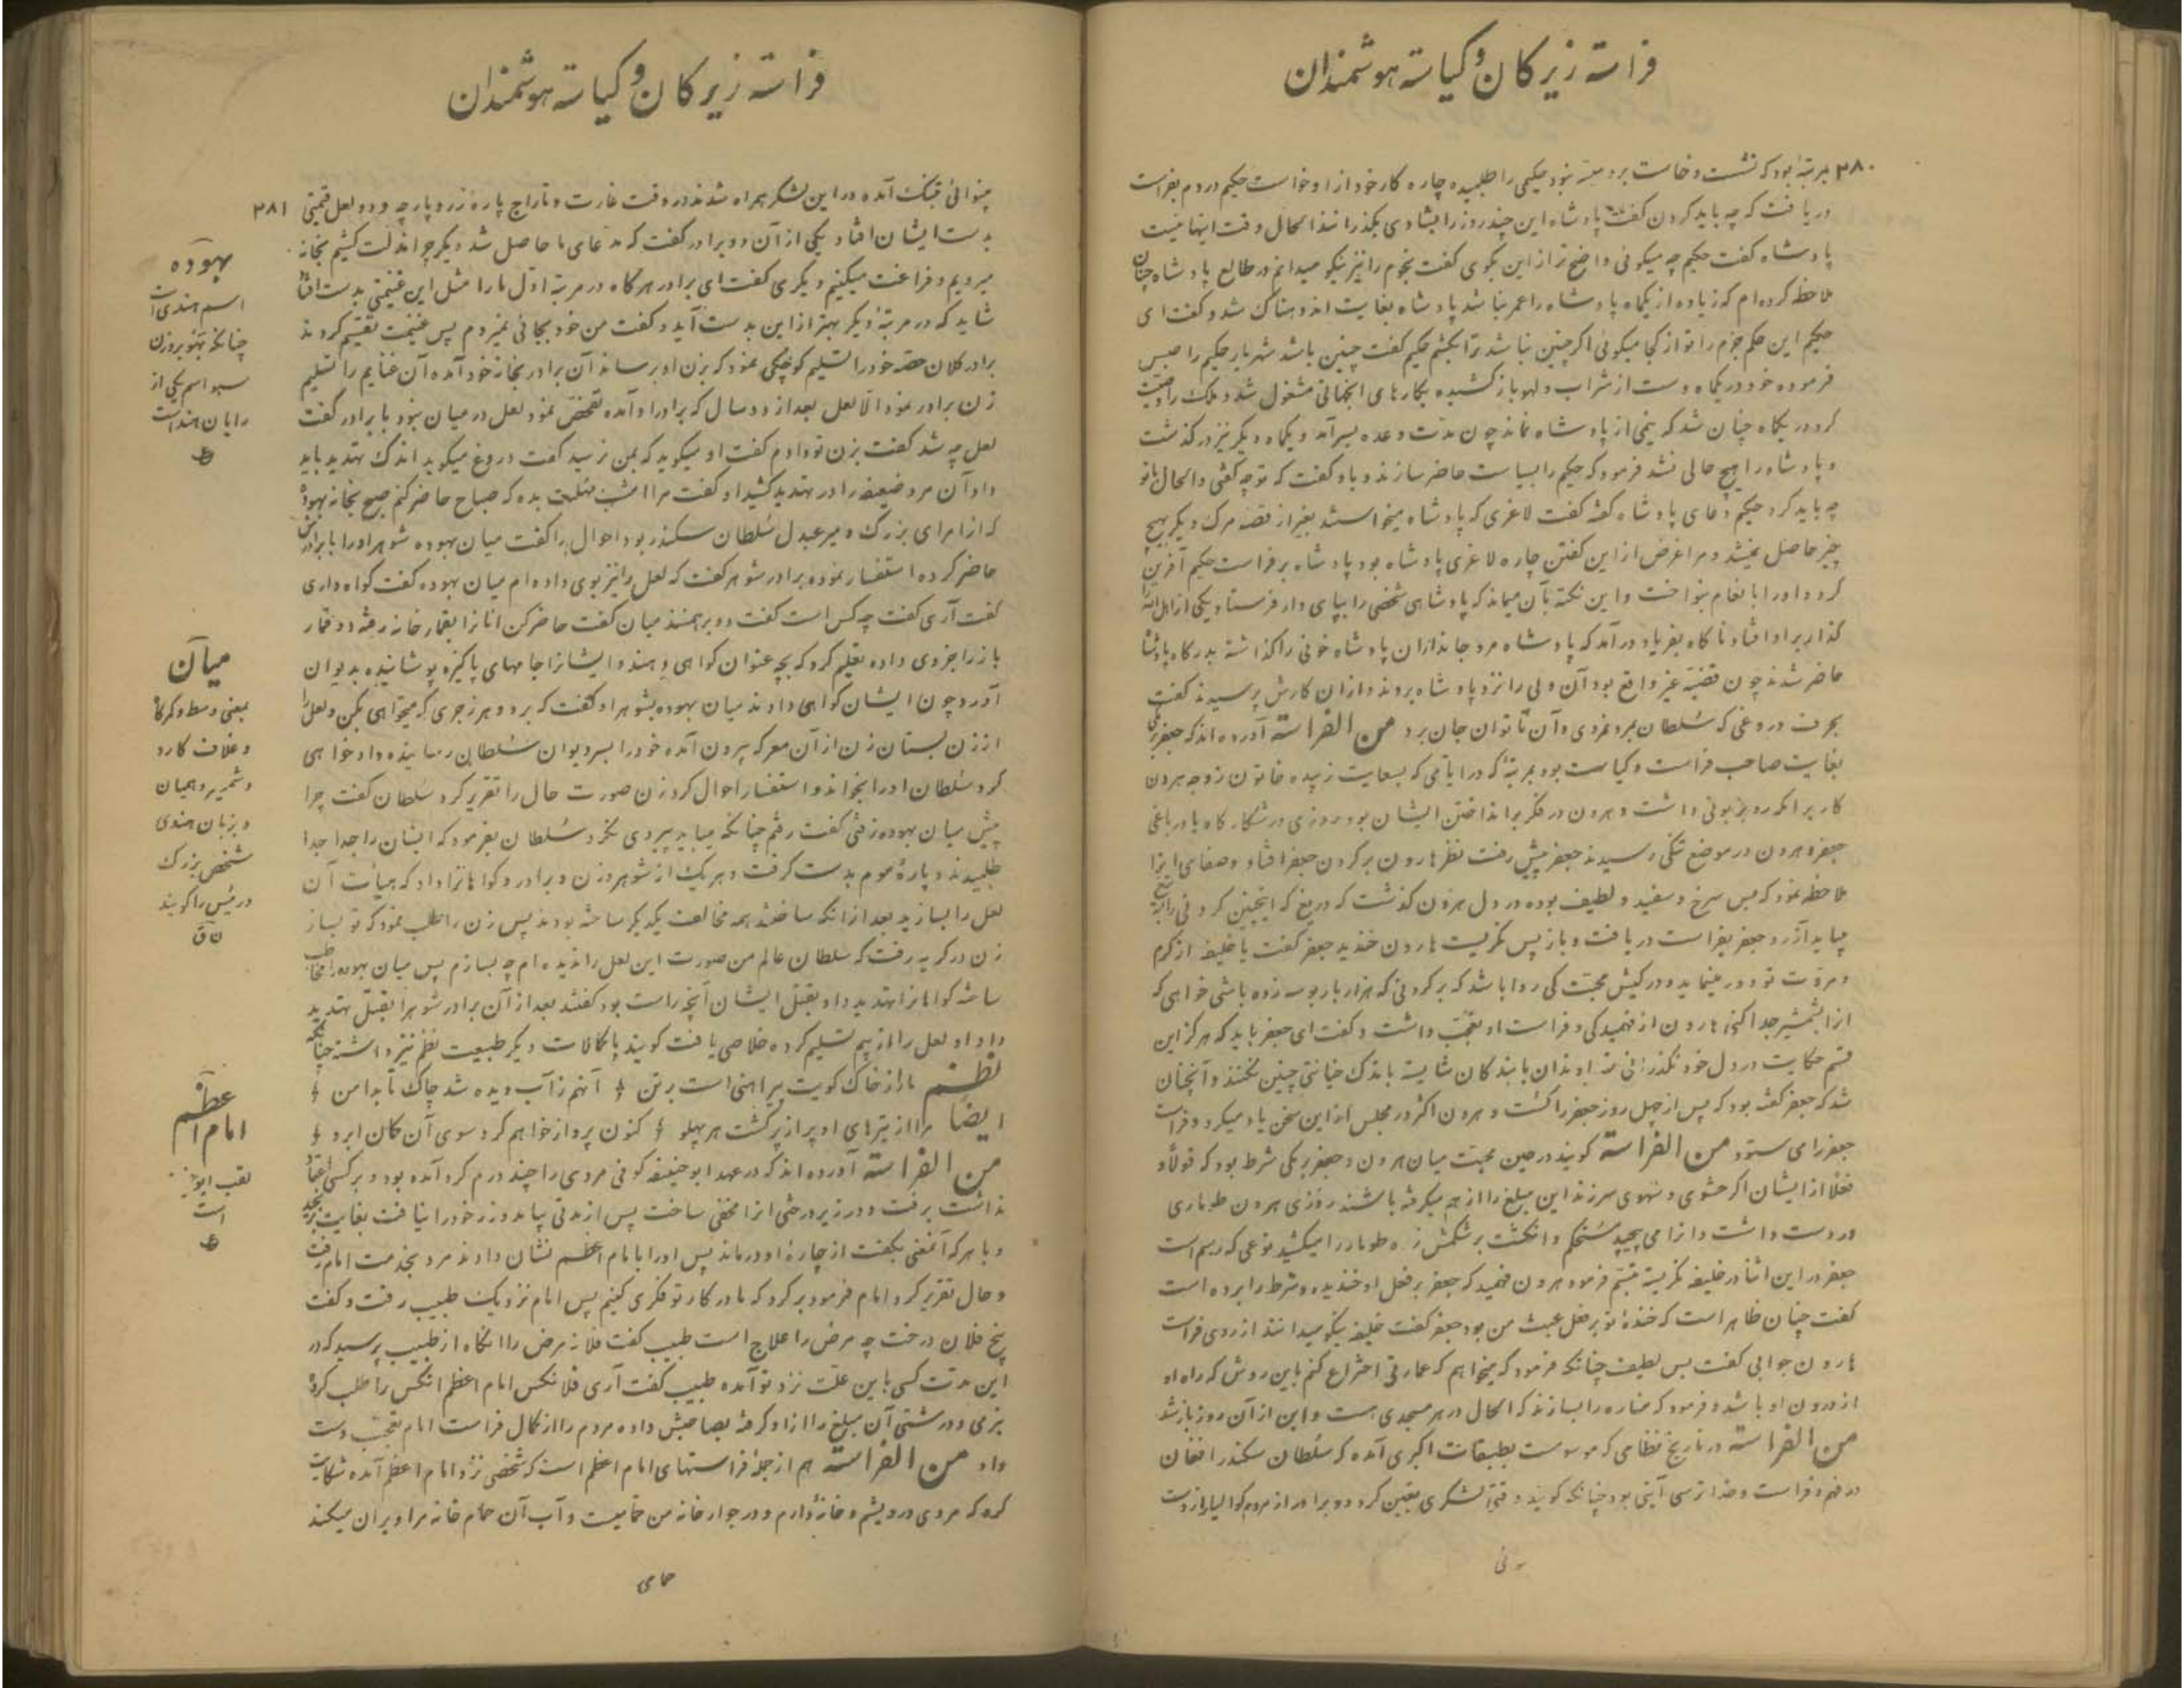 فراسته زیرکان و کیاسته هوشمندان
۳۸۰
بمرتبهٔ بود که نشست و خاست برو میسر نبود حکیمی را طلبیده چاره کار خود از او خواست حکیم در دم بفراست
دریافت که چه باید کردن گفت پادشاه این چند روز را بشادی بگذرانند الحال وقت اینها نیست
پادشاه گفت حکیم چه میگوئی واضح تر از این بگوی گفت نجوم را نیز نیکو میدانم در طالع پادشاه چنان
ملاحظه کرده ام که زیاده از یکماه پادشاه را عمر نباشد پادشاه بغایت اندوهناک شد و گفت ای
حکیم این حکم جزم را تو از کجا میگوئی اگر چنین نباشد ترا بکشم حکیم گفت چنین باشد شهریار حکیم را حبس
فرموده خود در یکماه دست از شراب و لهو باز کشیده بکارهای انجهانی مشغول شد و ملک را وصیت
کرد در یکماه چنان شد که نیمی از پادشاه نماند چون مدت وعده بسر آمد و یکماه دیگر نیز در گذشت
و پادشاه را هیچ حالی نشد فرمود که حکیم را بسیاست حاضر سازند و باو گفت که تو چه گفتی و الحال با تو
چه باید کرد حکیم دعای پادشاه گفته گفت لاغری که پادشاه میخواستند بغیر از قصهٔ مرگ دیگر بهیچ
چیز حاصل نمیشد و مرا غرض از این گفتن چاره لاغری پادشاه بود پادشاه بر فراست حکیم آفرین
کرد و او را بانعام بنواخت و این نکته بآن میماند که پادشاهی شخصی را بپای دار فرستاد یکی از اهل الله را
گذار بر او افتاد ناگاه بفریاد درآمد که پادشاه مرد جانداران پادشاه خونی را گذاشته بدرگاه پادشاه
حاضر شدند چون قضیه غیر واقع بود آن ولی را نزد پادشاه بردند و از ان کارش پرسیدند گفت
بحرف دروغی که سلطان بمرد نمردی و آن ناتوان جان برد من الفراسته آورده اند که جعفر برمکی
بغایت صاحب فراست و کیاست بود بمرتبهٔ که در ایامی که بسعایت زبیده خاتون زوجه هرون
کار برامکه رو بزبونی داشت و هرون در فکر برانداختن ایشان بود روزی در شکارگاه یا در باغی
جعفر و هرون در موضع تنگی رسیدند جعفر پیش رفت نظر هارون بر گردن جعفر افتاد و صفای آنرا
ملاحظه نمود که بس سرخ و سفید و لطیف بوده در دل هرون گذشت که دریغ که اینچنین گردنی را به تیغ
میباید آزرد جعفر بفراست دریافت و باز پس نگریست هارون خندید جعفر گفت یا خلیفه از کرم
و مروت تو دور مینماید و در کیش محبت کی روا باشد که بر گردنی که هزار بار بوسه زده باشی خواهی که
انرا بشمشیر جدا کنی هارون از فهمیدگی و فراست او تعجب داشت و گفت ای جعفر باید که هرگز این
قسم حکایت در دل خود نگذرانی خداوندان با بندگان شایسته باندک خیانتی چنین نکنند و آنچنان
شد که جعفر گفته بود که پس از چهل روز جعفر را کشت و هرون اکثر در مجلس از این سخن یاد میکرد و فراست
جعفر را می ستود من الفراسته گویند در حین محبت میان هرون و جعفر برمکی شرط بود که قولاً و
فعلاً از ایشان اگر حشوی و سهوی سر زند این مبلغ را از هم میگرفته باشند روزی هرون طوماری
در دست داشت و انرا می پیچید مستحکم و انگشت بر شکمش زده طومار را میکشید نوعی که رسم است
جعفر در این اثنا در خلیفه نگریسته تبسم فرمود هرون فهمید که جعفر بر فعل او خندیده و شرط را برده است
گفت چنان ظاهر است که خندهٔ تو بر فعل عبث من بود جعفر گفت خلیفه نیکو میدانند از روی فراست
هارون جوابی گفت بس لطیف چنانکه فرمود که میخواهم که عمارتی اختراع کنم باین روش که راه او
از درون او باشد و فرمود که مناره را بسازند که الحال در هر مسجدی هست و این از آن روز باز شد
من الفراسته در تاریخ نظامی که موسومست بطبقات اکبری آمده که سلطان سکندر افغان
در فهم و فراست و خداترسی آیتی بود چنانکه گویند وقتی لشکری تعین کرد دو برادر از مردم گوالیار از دست
فراسته زیرکان و کیاسته هوشمندان
۳۸۱
بینوائی بتنگ آمده در این لشکر همراه شدند در وقت غارت و تاراج پاره زر و پارچه و دو لعل قیمتی
بدست ایشان افتاد یکی از آن دو برادر گفت که مدعای ما حاصل شد دیگر چرا مذلت کشیم بخانه
میرویم و فراغت میکنیم دیگری گفت ای برادر هرگاه در مرتبه اول ما را مثل این غنیمتی بدست افتاد
شاید که در مرتبهٔ دیگر بهتر از این بدست آید و گفت من خود بجائی نمیروم پس غنیمت تقسیم کردند
برادر کلان حصه خود را تسلیم کوچکی نمود که بزن او برساند آن برادر بخانه خود آمده آن غنایم را تسلیم
زن برادر نمود الا لعل بعد از دو سال که برادر او آمده تفحص نمود لعل در میان نبود با برادر گفت
لعل چه شد گفت بزن تو دادم گفت او میگوید که بمن نرسید گفت دروغ میگوید اندک تهدید باید
داد آن مرد ضعیفه را در تهدید کشید او گفت مرا امشب مهلت بده که صباح حاضر کنم صبح بخانه بهوده
که از امرای بزرگ و میر عدل سلطان سکندر بود احوال را گفت میان بهوده شوهر او را با برادرش
حاضر کرده استفسار نموده برادر شوهر گفت که لعل را نیز بوی داده ام میان بهوده گفت گواه داری
گفت آری گفت چه کس است گفت دو برهمنند میان گفت حاضر کن انانرا بقمارخانه رفته دو قمار
باز را جزوی داده تعلیم کرد که بچه عنوان گواهی دهند و ایشانرا جامهای پاکیزه پوشانیده بدیوان
آورد چون ایشان گواهی دادند میان بهوده بشوهر او گفت که برو و هر زجری که میخواهی بکن و لعل را
از زن بستان زن از آن معرکه بیرون آمده خود را بسر دیوان سلطان رسانیده داد خواهی
کرد سلطان او را بخواند و استفسار احوال کرد زن صورت حال را تقریر کرد سلطان گفت چرا
پیش میان بهوده نرفتی گفت رفتم چنانکه میباید پیروی نکرد سلطان بفرمود که ایشان را جدا جدا
طلبیدند و پارهٔ موم بدست گرفت و هر یک از شوهر و زن و برادر و گواهانرا داد که هیأت آن
لعل را بسازید بعد از انکه ساختند همه مخالف یکدیگر ساخته بودند پس زن را طلب نمود که تو بساز
زن در گریه رفت که سلطان عالم من صورت این لعل را ندیده ام چه بسازم پس میان بهوده را مخاطب
ساخته گواهانرا تهدید داد بقتل ایشان آنچه راست بود گفتند بعد از آن برادر شوهر را بقتل تهدید
داد او لعل را از بیم تسلیم کرده خلاصی یافت گویند با کمالات دیگر طبیعت نظم نیز داشته چنانکه
نظم ما را ز خاک کویت پیراهنی است بر تن آنهم ز آب دیده شد چاک تا بدامن
ایضاً مرا از تیرهای او پر از پر گشت هر پهلو کنون پرواز خواهم کرد سوی آن کمان ابرو
من الفراسته آورده اند که در عهد ابوحنیفه کوفی مردی را چند درم گرد آمده بود و بر کسی اعتماد
نداشت برفت و در زیر درختی انرا مخفی ساخت پس از مدتی بیامد و زر خود را نیافت بغایت برنجید
و با هر که آنمعنی بگفت از چارهٔ او درماند پس او را بامام اعظم نشان دادند مرد بخدمت امام رفت
و حال تقریر کرد امام فرمود برگرد که ما در کار تو فکری کنیم پس امام نزدیک طبیب رفت و گفت
بیخ فلان درخت چه مرض را علاج است طبیب گفت فلانه مرض را انگاه از طبیب پرسید که در
این مدت کسی باین علت نزد تو آمده طبیب گفت آری فلانکس امام اعظم انکس را طلب کرده
بنرمی و درشتی آن مبلغ را از او گرفته بصاحبش داده مردم را از کمال فراست امام تعجب دست
داد من الفراسته هم از جملهٔ فراستهای امام اعظم است که شخصی نزد امام اعظم آمده شکایت
کرد که مردی درویشم و خانهٔ دارم و در جوار خانه من حمامیست و آب آن حمام خانه مرا ویران میکند
حمامی
بهوده
اسم هندی است
چنانکه بهو بروزن
سبو اسم یکی از
رایان هند است
میان
بمعنی وسط و کمرگاه
و غلاف کارد
و شمشیر و همیان
و بزبان هندی
شخص بزرگ
و رئیس را گویند
امام اعظم
لقب ابوحنیفه
است